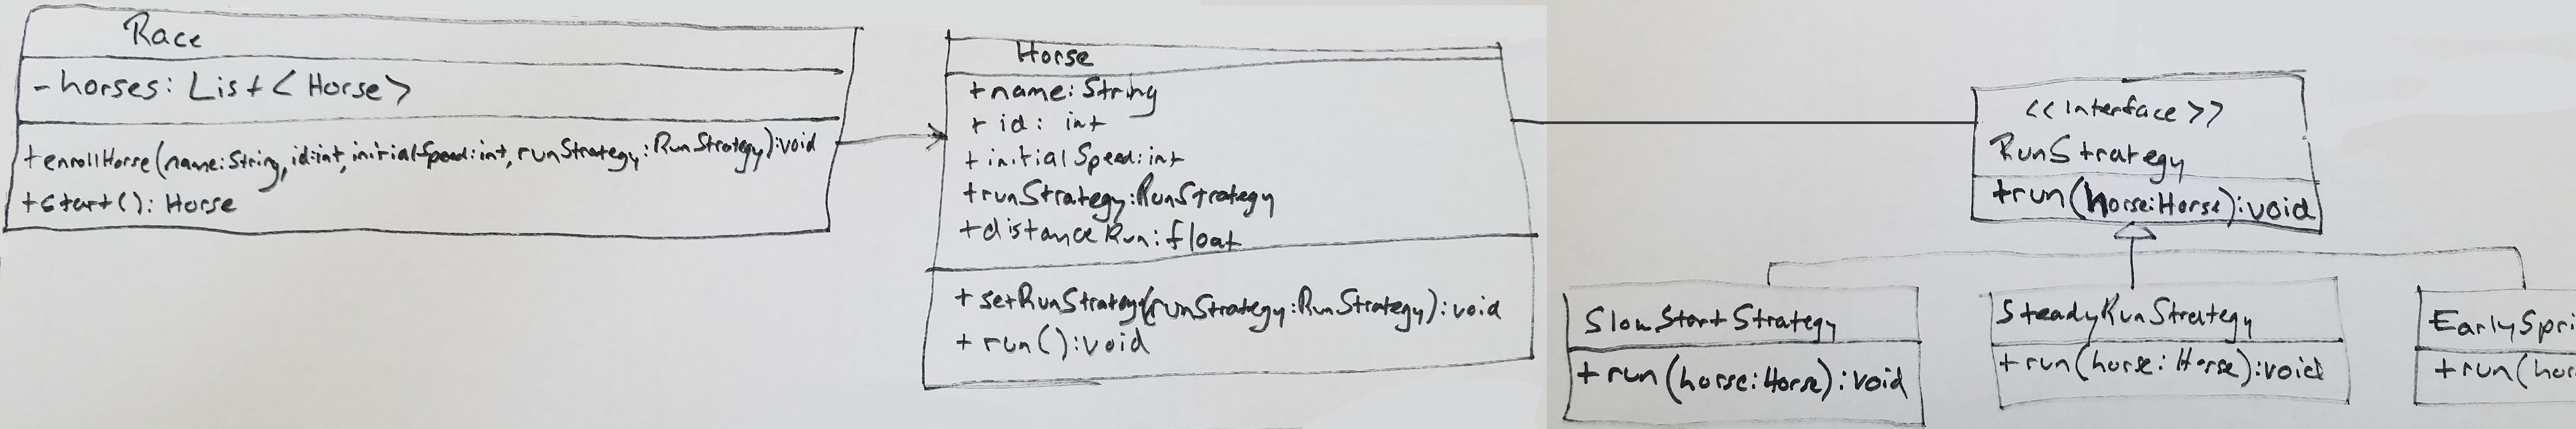 Race
- horses: List < Horse >
+ enrollHorse(name:String, id:int, initialSpeed:int, runStrategy:RunStrategy):void
+ start(): Horse
Horse
+ name: String
+ id: int
+ initialSpeed: int
+ runStrategy:RunStrategy
+ distanceRun: float
+ setRunStrategy(runStrategy:RunStrategy): void
+ run():void
<< Interface >>
RunStrategy
+run(horse:Horse):void
SlowStartStrategy
+run(horse:Horse):void
SteadyRunStrategy
+run(horse: Horse):void
EarlySpri
+run(hor